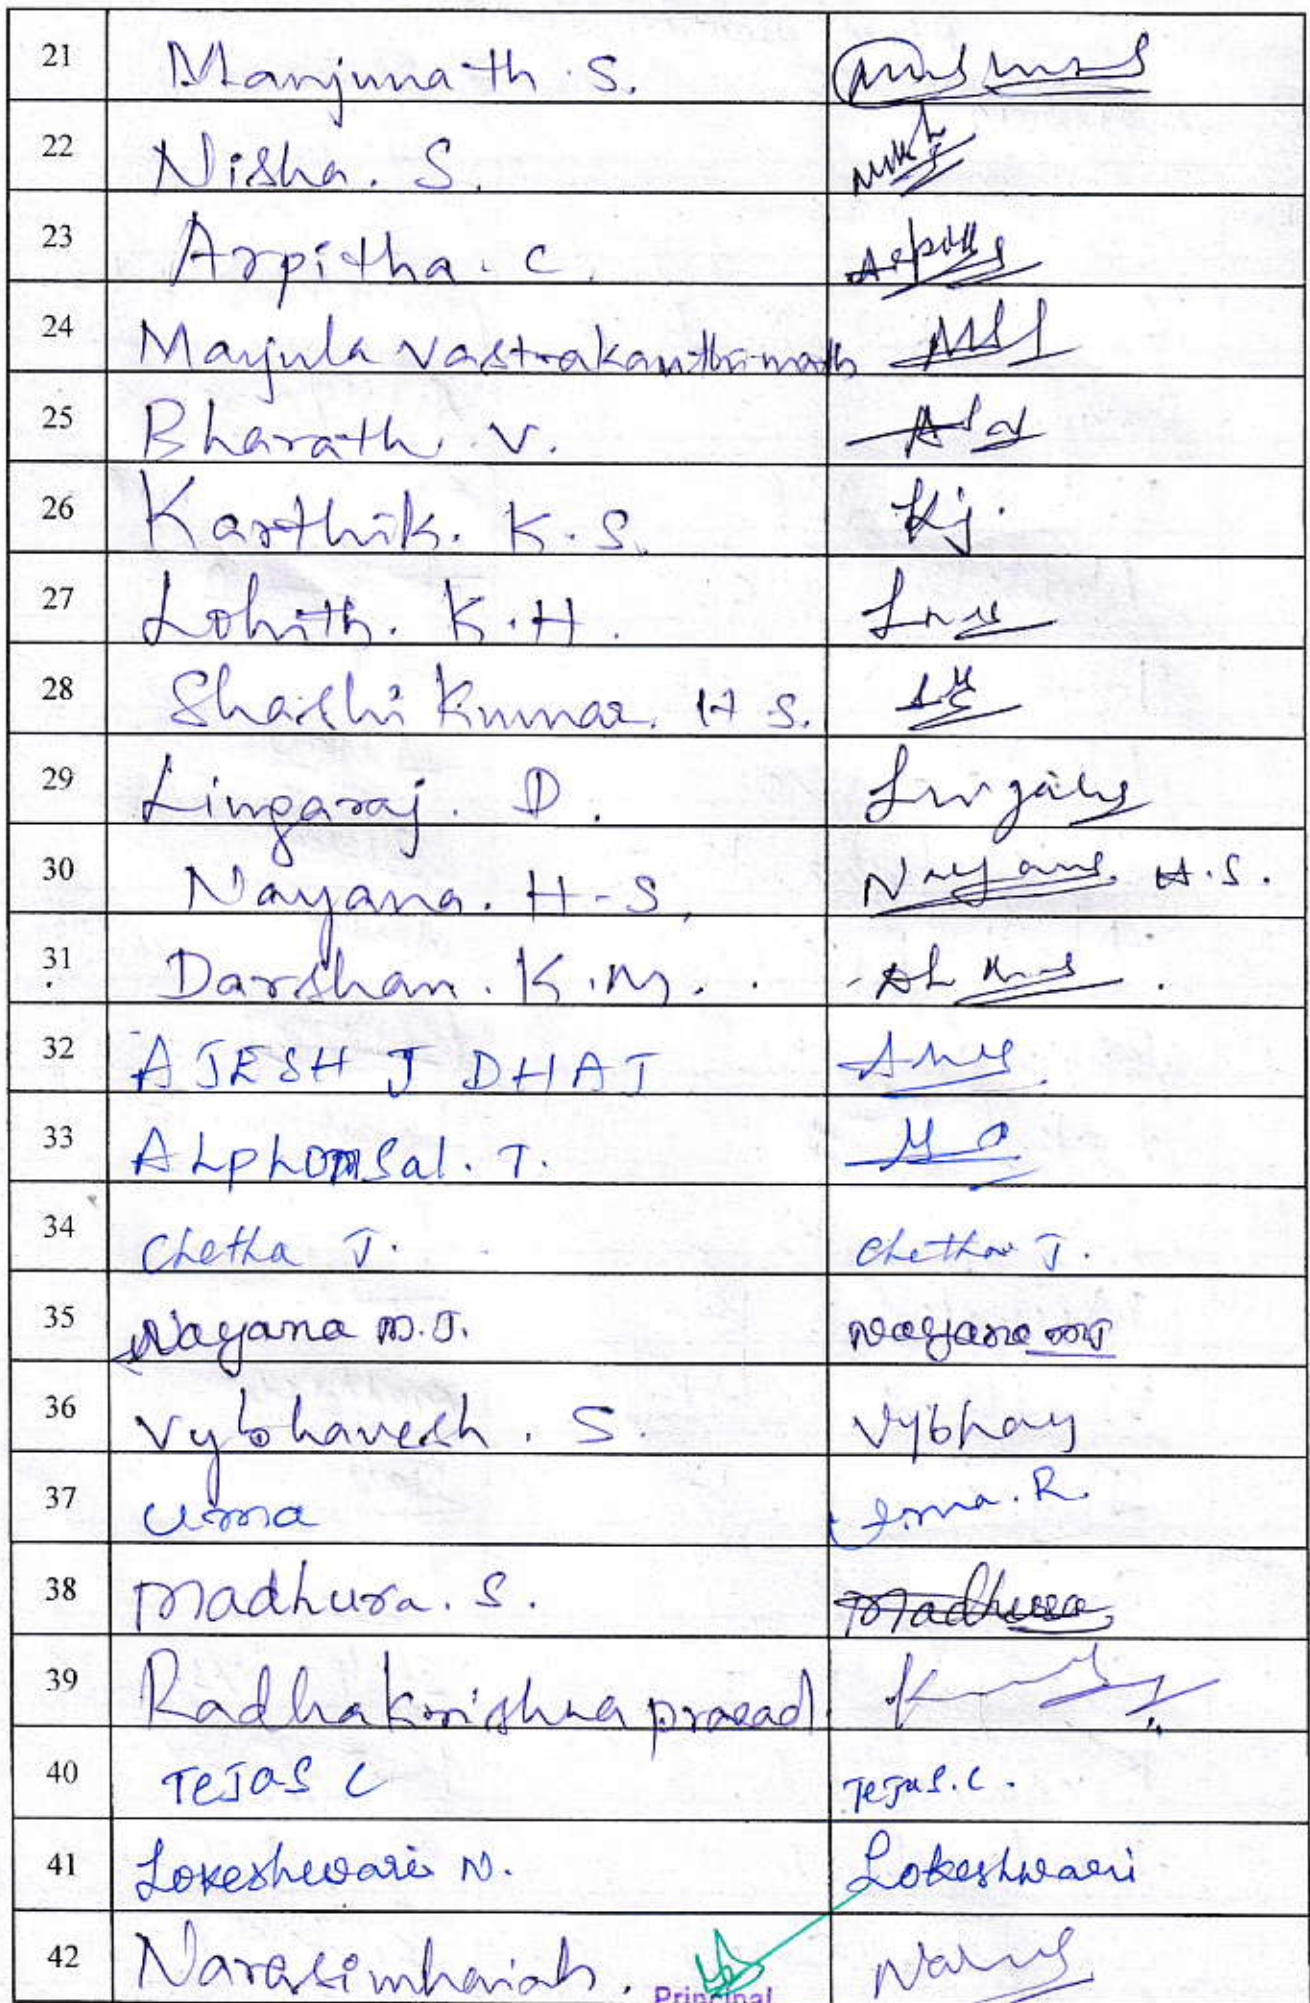 21 Manjunath S.
22 Nisha. S.
23 Arpitha. C.
24 Manjula Vastrakanthimath
25 Bharath. V.
26 Karthik. K.S. Kj.
27 Lohith. K.H.
28 Shashi Kumar. H S.
29 Lingaraj. D.
30 Nayana. H-S. Nayana. H.S.
31 Darshan. K.M.
32 AJESH J DHAT
33 ALphonsal. T.
34 Chetha J. Chetha J.
35 Nayana M.J. Nayana MJ
36 Vybhavesh. S. Vybhav
37 Uma Uma. R.
38 Madhura. S. Madhura
39 Radhakrishna prasad
40 TEJAS C TEJAS.C.
41 Lokeshwari N. Lokeshwari
42 Narasimhaiah.
Principal